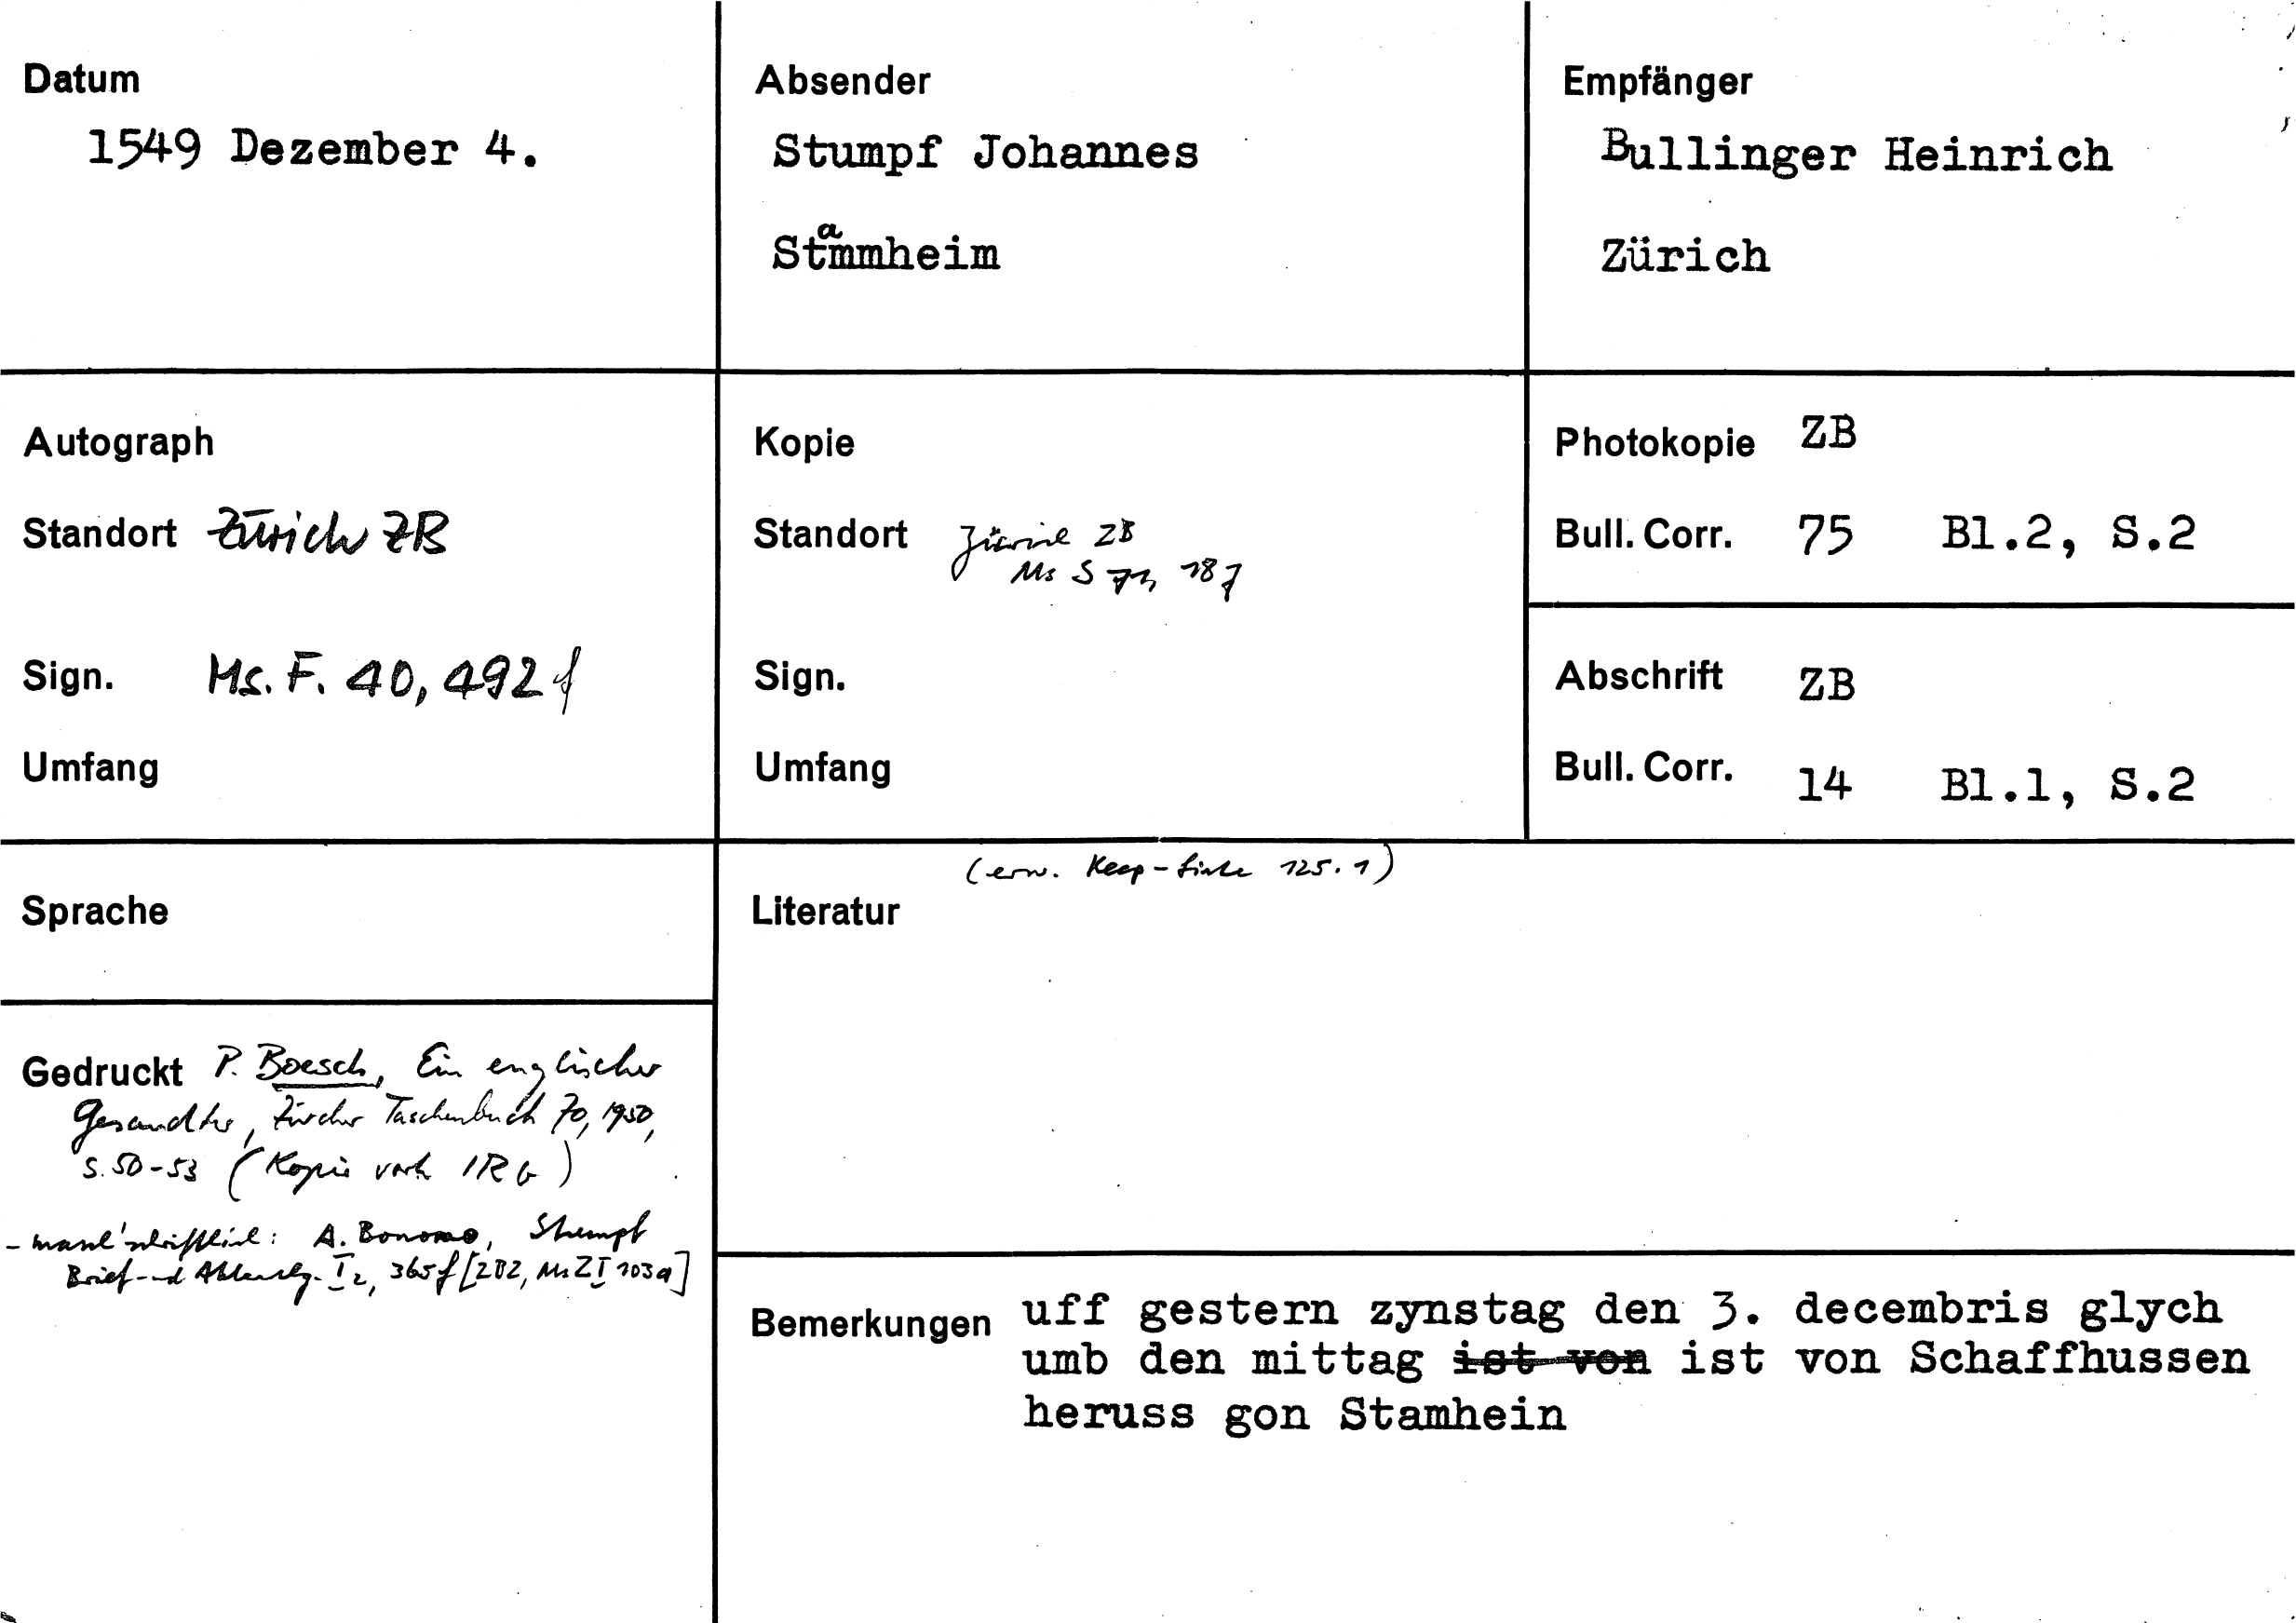 Datum
1549 Dezember 4.
Absender
Stumpf Johannes
Stammheim
Empfänger
Bullinger Heinrich
Zürich
Autograph
Standort Zürich ZB
Sign. Ms. F. 40, 492 f
Umfang
Kopie
Standort Zürich ZB
Ms S 71, 187
Sign.
Umfang
Photokopie ZB
Bull. Corr. 75 Bl.2, S.2
Abschrift ZB
Bull. Corr. 14 Bl.1, S.2
Sprache
(erw. 125.1)
Literatur
Gedruckt P. Boesch, Ein englischer
Gesandter, Zürcher Taschenbuch 70, 1950,
S. 50-53 (Kopie vorh IRG)
- masch'schriftlich: A. Bonomo, Stumpf
Brief- und I 2, 365 f [ZBZ, Ms Z I 103a]
Bemerkungen uff gestern zynstag den 3. decembris glych
umb den mittag ist von ist von Schaffhussen
heruss gon Stamhein